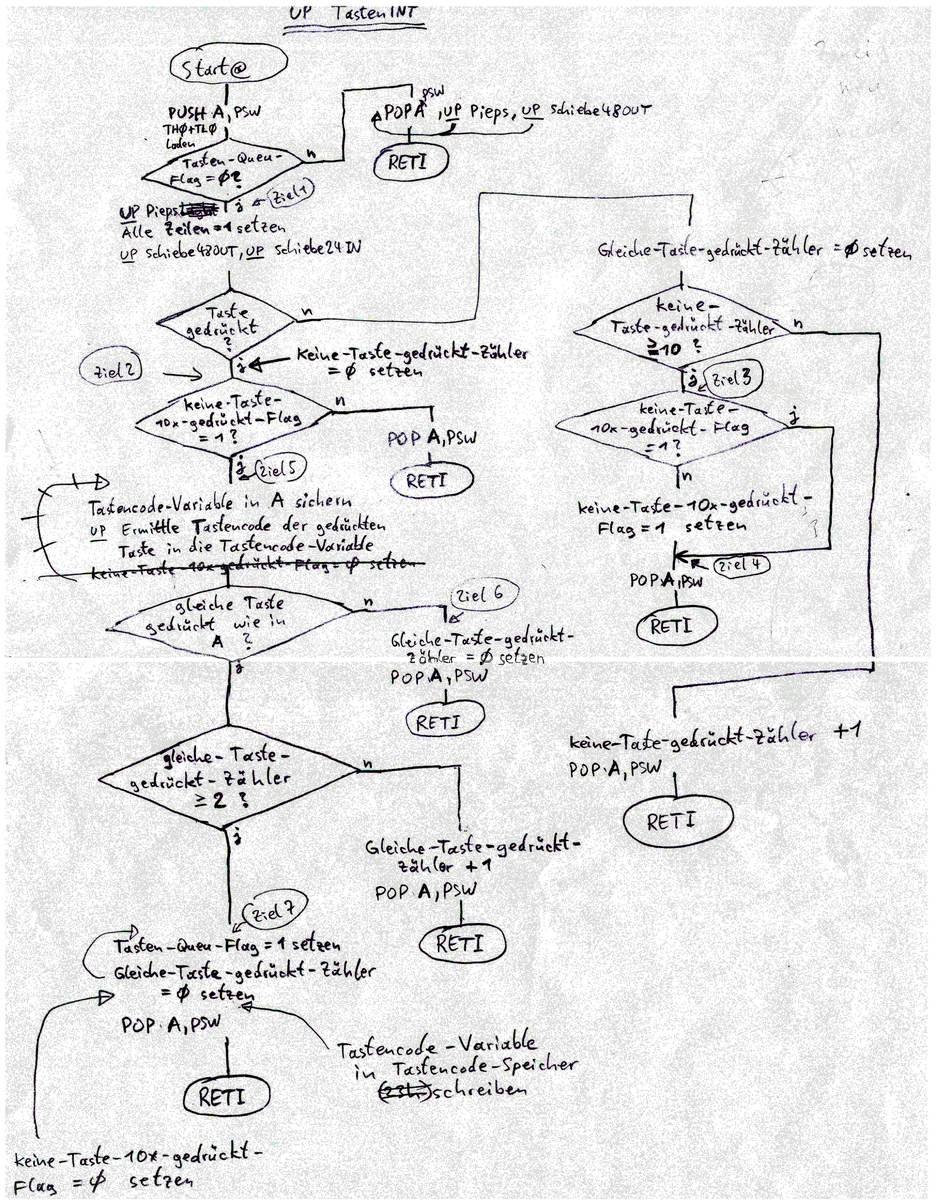 UP TastenINT
Start@
PUSH A, PSW
THØ+TLØ
Laden
Tasten-Queu-
Flag = Ø?
n
PSW
POP A, UP Pieps, UP Schiebe48OUT
RETI
j
Ziel 1
UP Pieps
Alle Zeilen = 1 setzen
UP Schiebe48OUT, UP Schiebe24IN
Taste
gedrückt
?
n
j
Keine-Taste-gedrückt-Zähler
= Ø setzen
Ziel 2
keine-Taste-
10x-gedrückt-Flag
= 1?
n
POP A, PSW
RETI
j
Ziel 5
Tastencode-Variable in A sichern
UP Ermittle Tastencode der gedrückten
Taste in die Tastencode-Variable
keine-Taste-10x-gedrückt-Flag = Ø setzen
gleiche Taste
gedrückt wie in
A ?
n
Ziel 6
Gleiche-Taste-gedrückt-
Zähler = Ø setzen
POP A, PSW
RETI
j
gleiche-Taste-
gedrückt-Zähler
≥ 2 ?
n
Gleiche-Taste-gedrückt-
Zähler +1
POP A, PSW
RETI
j
Ziel 7
Tasten-Queu-Flag = 1 setzen
Gleiche-Taste-gedrückt-Zähler
= Ø setzen
POP A, PSW
RETI
Tastencode-Variable
in Tastencode-Speicher
schreiben
keine-Taste-10x-gedrückt-
Flag = Ø setzen
Gleiche-Taste-gedrückt-Zähler = Ø setzen
keine-
Taste-gedrückt-Zähler
≥10 ?
n
j
Ziel 3
keine-Taste-
10x-gedrückt-Flag
=1?
j
n
keine-Taste-10x-gedrückt-
Flag = 1 setzen
Ziel 4
POP A, PSW
RETI
keine-Taste-gedrückt-Zähler +1
POP A, PSW
RETI